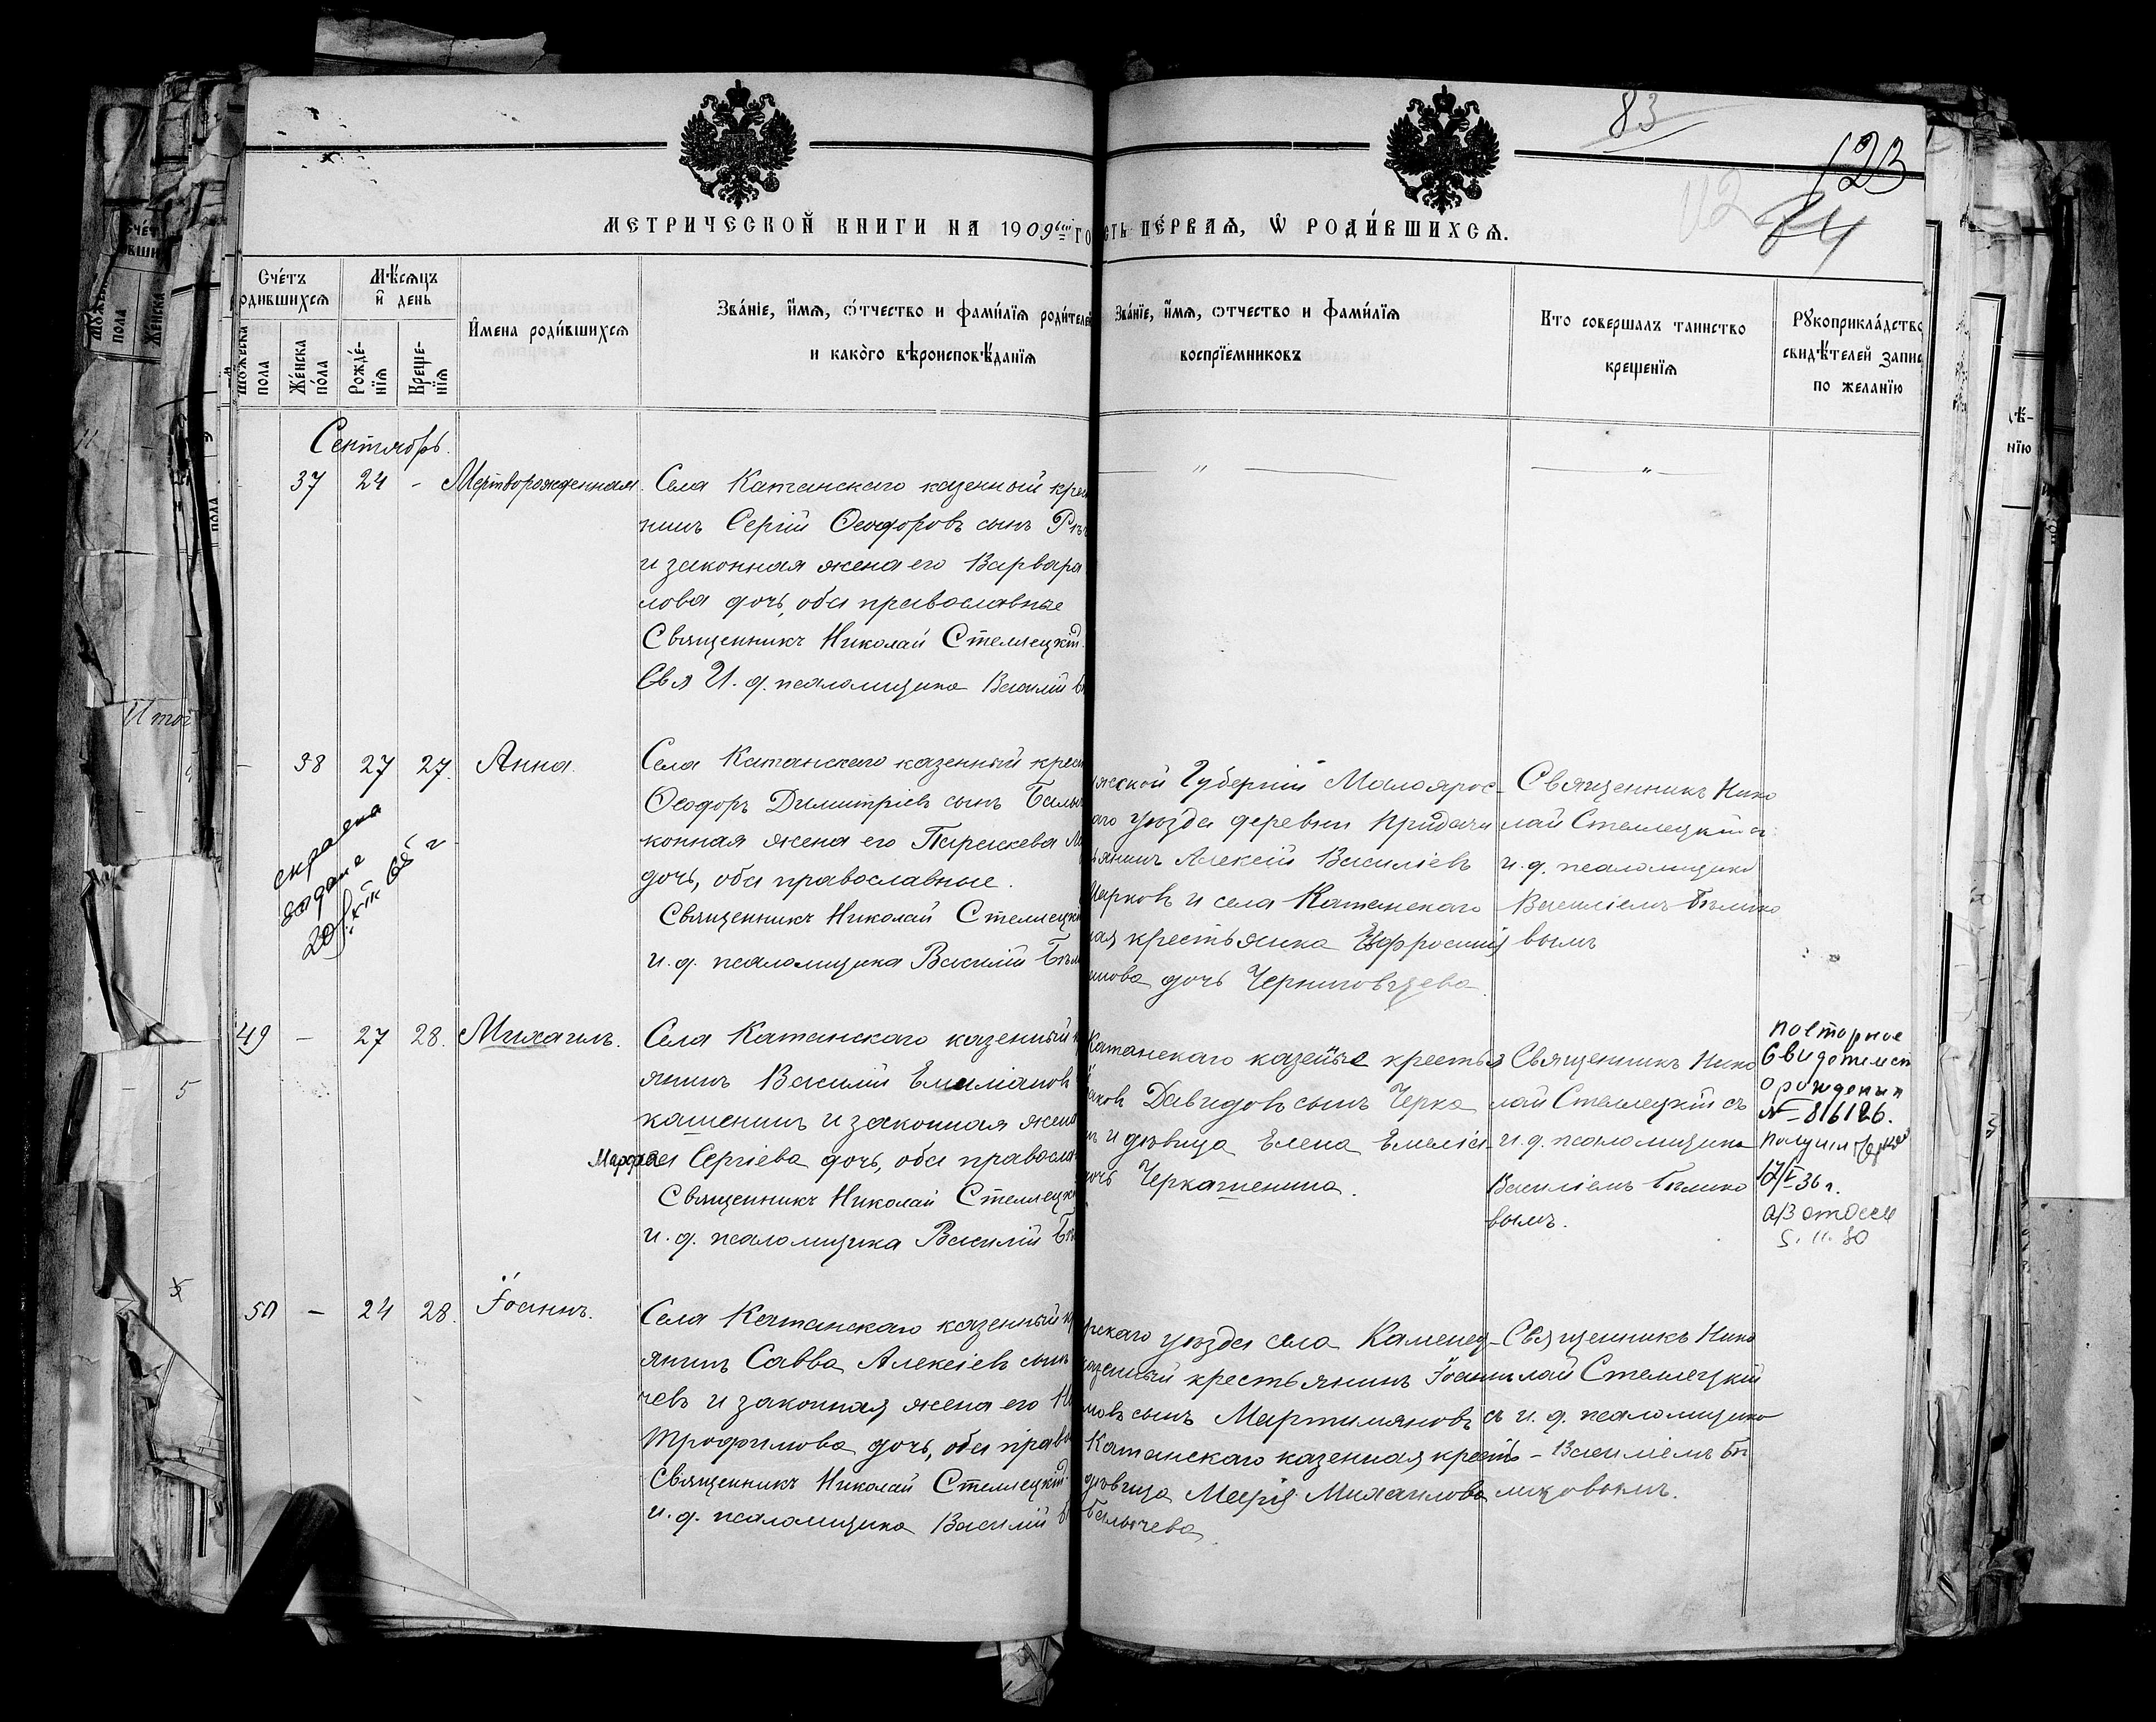 83
123
112
84
МЕТРИЧЕСКОЙ КНИГИ НА 1909ый ГО
СТЬ ПЕРВАЯ, Ѡ РОДИВШИХСЯ.
Счетъ
родившихся
Мѣсяцъ
и день
Мужеска
пола
Женска
пола
Рожде-
нія
Креще-
нія
Имена родившихся
Званіе, имя, отчество и фамилія родителе
и какого вѣроисповѣданія
Званіе, имя, отчество и фамилія
воспріемниковъ
Кто совершалъ таинство
крещенія
Рукоприкладство
свидѣтелей запис
по желанію
Сентябрь.
37 24 - Мертворожденная.
Села Катанскаго казенный крес
нинъ Сергій Ѳеодоровъ сынъ
и законная жена его Варвара
лова дочь, оба православные
Священникъ Николай Стеллецкій.
И. д. псаломщика Василій
- 38 27 27. Анна.
Села Катанскаго казенный крес
Ѳеодоръ Димитріевъ сынъ Балы
конная жена его Параскева М
дочь, оба православные.
Священникъ Николай Стеллецкі
и. д. псаломщика Василій Бѣл
жской Губерніи Малоярос-
аго уѣзда деревни Придачи
янинъ Алексій Василіевъ
Марковъ и села Катанскаго
ая крестьянка Евфросинія
дочь Черниговцева.
Священникъ Нико
лай Стеллецкій съ
и. д. псаломщика
Василіемъ Бѣлико
вымъ
справка
выдана
20/XII 68 г
49 - 27 28. Михаилъ.
Села Катанскаго казенный к
янинъ Василій Емиліановъ
кашенинъ и законная жена
Марфа Сергіева дочь, оба правосла
Священникъ Николай Стеллецкі
и. д. псаломщика Василій Бѣ
Катанскаго казенные крестья
аковъ Давидовъ сынъ Черка
нъ и дѣвица Елена Емилія-
дочь Черкашенина.
Священникъ Нико
лай Стеллецкій съ
и. д. псаломщика
Василіемъ Бѣлико
вымъ.
повторное
свидетельст
о рождении
№ 816126.
получил
17/V-36 г.
5. 11. 80
50 - 24 28. Іоаннъ.
Села Катанскаго казенный кр
янинъ Савва Алексіевъ сынъ
чевъ и законная жена его
Трофимова дочь, оба право
Священникъ Николай Стеллецкій.
и. д. псаломщика Василій Б
рскаго уѣзда села Каменец-
казенный крестьянинъ Іоанн
новъ сынъ Мартимяновъ
Катанскаго казенная кресть-
дѣвица Марія Михаилова
Балычева
Священникъ Нико
лай Стеллецкій
съ и. д. псаломщика
Василіемъ Бѣ
ликовымъ.